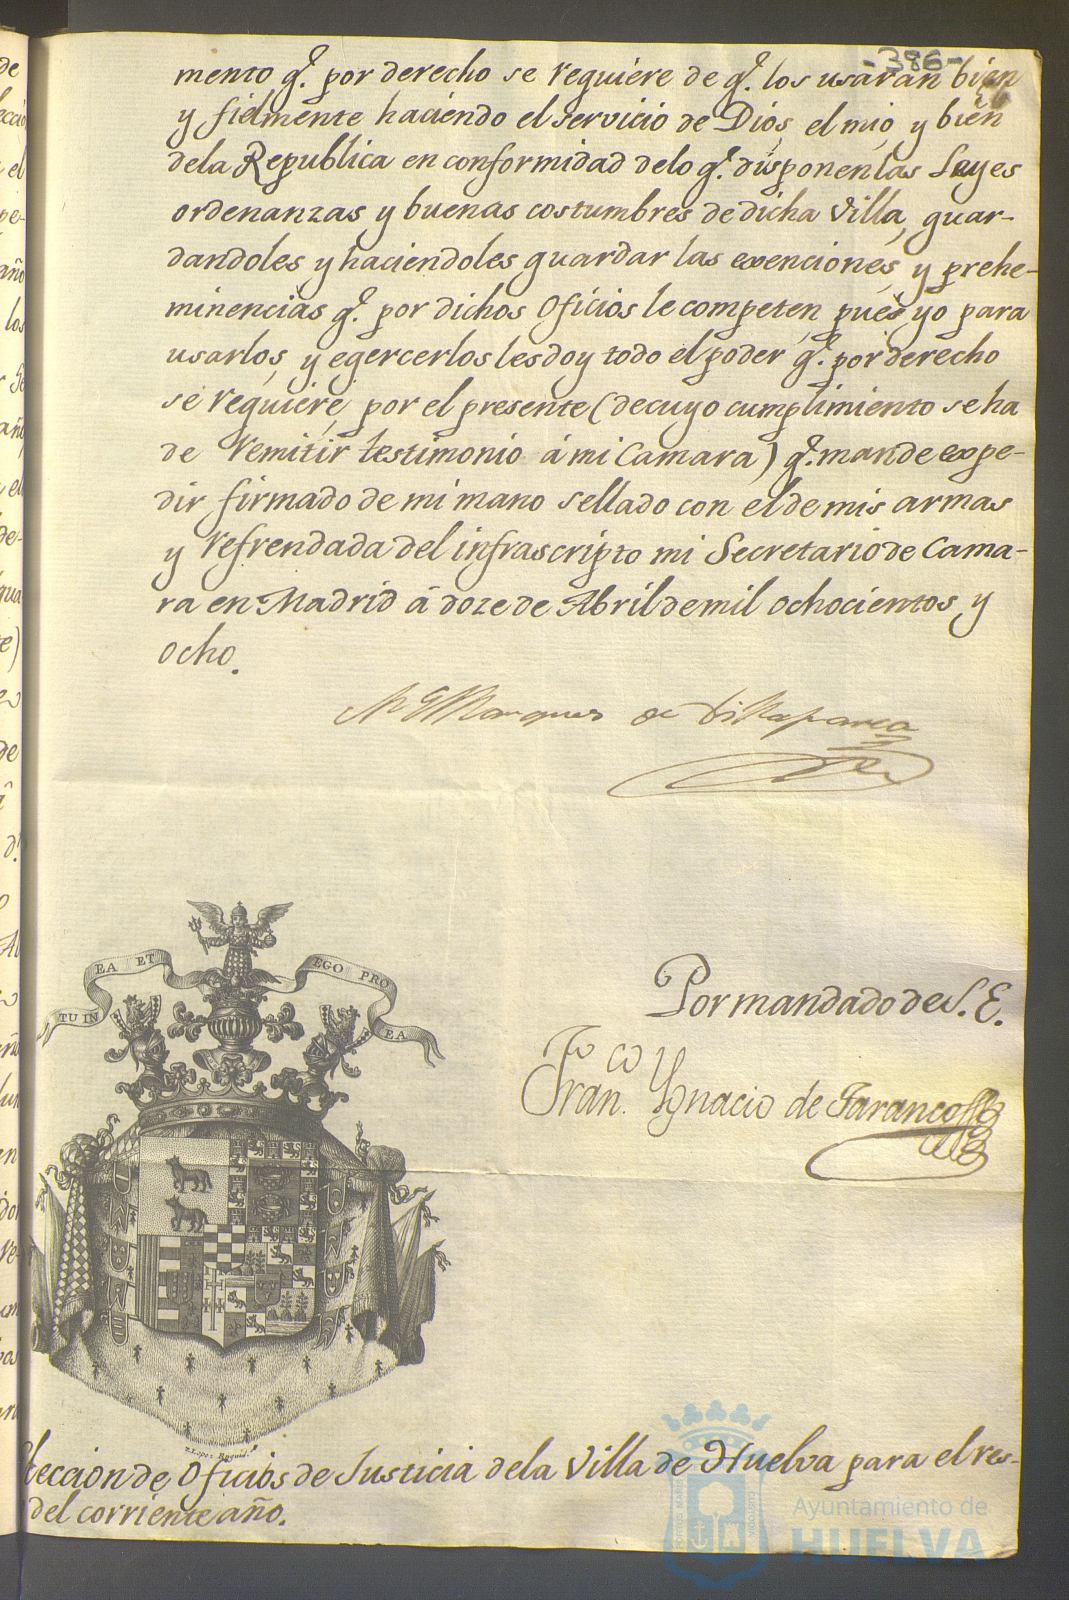 -386-
mento q.e por derecho se requiere de q.e los usaran bien
y fielmente haciendo el servicio de Dios, el mio, y bien
dela Republica en conformidad delo q.e disponen las Leyes
ordenanzas y buenas costumbres de dicha Villa, guar-
dandoles y haciendoles guardar las exenciones, y prehe-
minencias q.e por dichos Oficios le competen, pues yo para
usarlos, y egercerlos les doy todo el poder q.e por derecho
se requiere, por el presente (de cuyo cumplimiento se ha
de remitir testimonio á mi Camara) q.e mande expe-
dir firmado de mi mano sellado con el de mis armas
y refrendada del infrascripto mi Secretario de Cama-
ra en Madrid á doze de Abril de mil ochocientos, y
ocho.
Marques de Villafranca
TU IN EA ET EGO PRO EA
Por mandado de S. E.
Fran.co Ygnacio de Taranco
eccion de Oficios de Justicia dela Villa de Huelva para el res-
del corriente año.
Ayuntamiento de
HUELVA